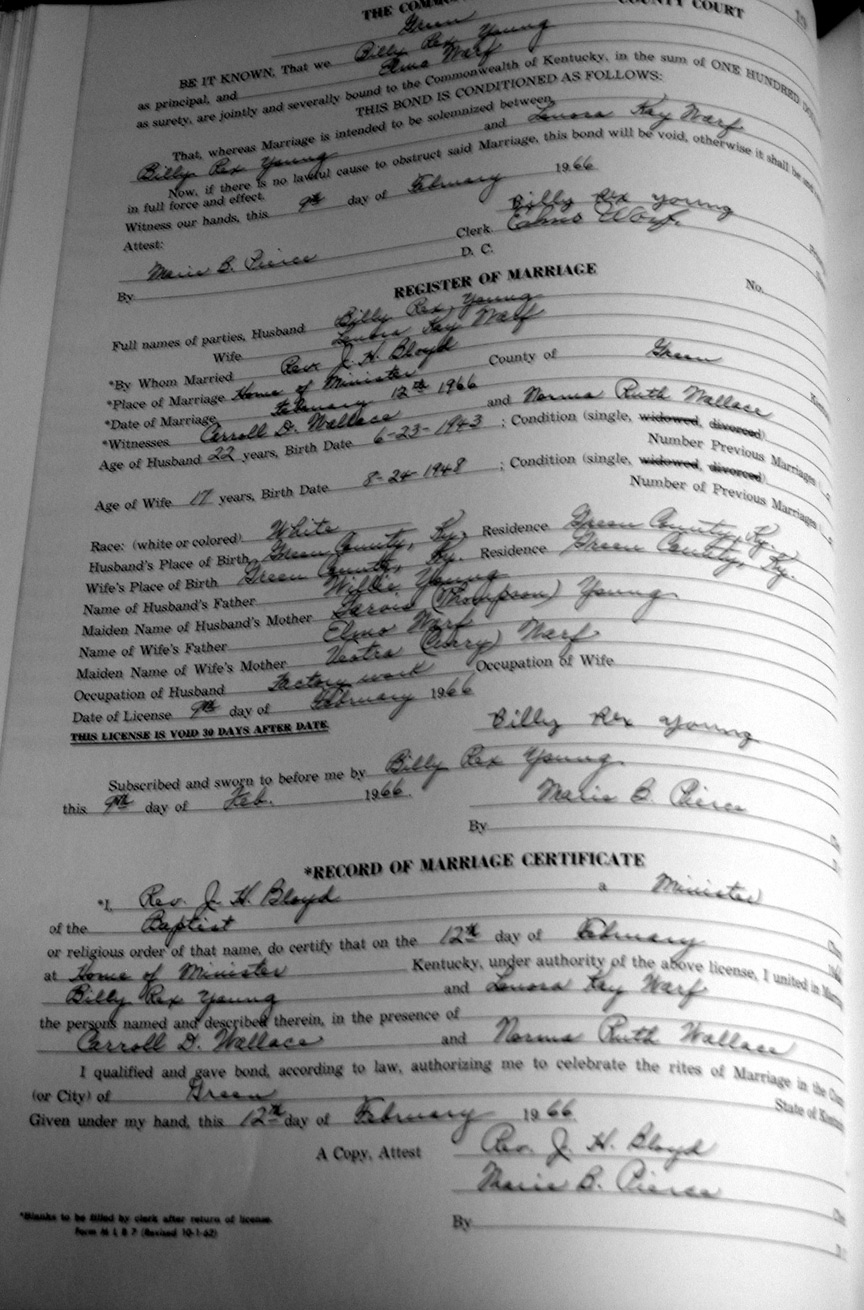 THE COMMO COUNTY COURT
Green
BE IT KNOWN, That we Billy Rex Young
as principal, and Elmo Warf
as surety, are jointly and severally bound to the Commonwealth of Kentucky, in the sum of ONE HUNDRED
THIS BOND IS CONDITIONED AS FOLLOWS:
That, whereas Marriage is intended to be solemnized between
Billy Rex Young and Lenora Kay Warf
Now, if there is no lawful cause to obstruct said Marriage, this bond will be void, otherwise it shall be and
in full force and effect.
Witness our hands, this 9th day of February 1966
Billy Rex young
Attest: Elmo Warf
Marie B. Pierce Clerk
By D. C.
REGISTER OF MARRIAGE
No.
Full names of parties, Husband Billy Rex Young
Wife Lenora Kay Warf
*By Whom Married Rev. J. H. Bloyd
*Place of Marriage Home of Minister County of Green
*Date of Marriage February 12th 1966
*Witnesses Carroll D. Wallace and Norma Ruth Wallace
Age of Husband 22 years, Birth Date 6-23-1943 ; Condition (single, widowed, divorced)
Number Previous Marriages
Age of Wife 17 years, Birth Date 8-24-1948 ; Condition (single, widowed, divorced)
Number of Previous Marriages
Race: (white or colored) White
Husband's Place of Birth Green County, Ky. Residence Green County, Ky.
Wife's Place of Birth Green County, Ky. Residence Green County, Ky.
Name of Husband's Father Willie Young
Maiden Name of Husband's Mother (Thompson) Young
Name of Wife's Father Elmo Warf
Maiden Name of Wife's Mother Warf
Occupation of Husband Factory work Occupation of Wife
Date of License 9th day of February 1966
THIS LICENSE IS VOID 30 DAYS AFTER DATE.
Billy Rex young
Subscribed and sworn to before me by Billy Rex Young
this 9th day of Feb. 1966.
Marie B. Pierce
By
*RECORD OF MARRIAGE CERTIFICATE
*I, Rev. J. H. Bloyd a Minister
of the Baptist
or religious order of that name, do certify that on the 12th day of February
at Home of Minister Kentucky, under authority of the above license, I united in
Billy Rex Young and Lenora Kay Warf
the persons named and described therein, in the presence of
Carroll D. Wallace and Norma Ruth Wallace
I qualified and gave bond, according to law, authorizing me to celebrate the rites of Marriage in the
(or City) of Green State of
Given under my hand, this 12th day of February 1966
Rev. J. H. Bloyd
A Copy, Attest
Marie B. Pierce
By
*Blanks to be filled by clerk after return of license.
Form M L B 7 (Revised 10-1-62)